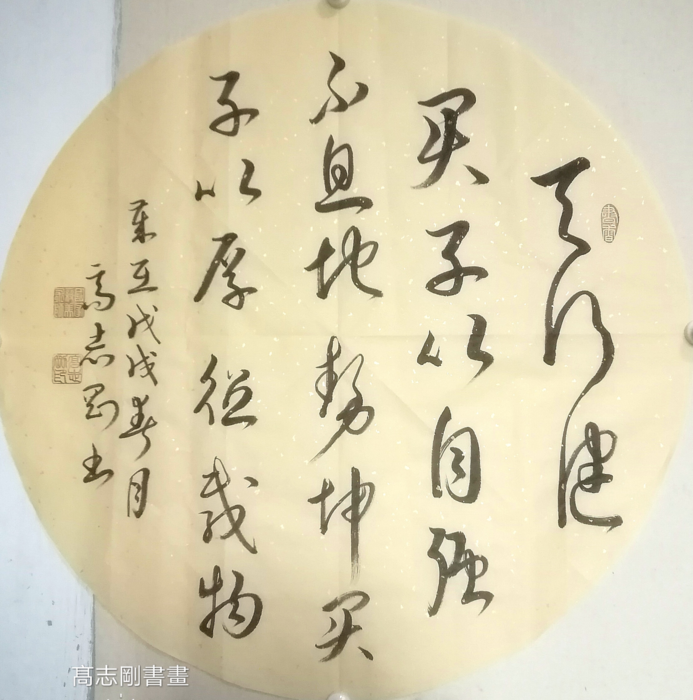 天行健
君子以自强
不息地势坤君
子以厚德载物
岁在戊戌春月
高志刚书
書香
髙志剛書畫